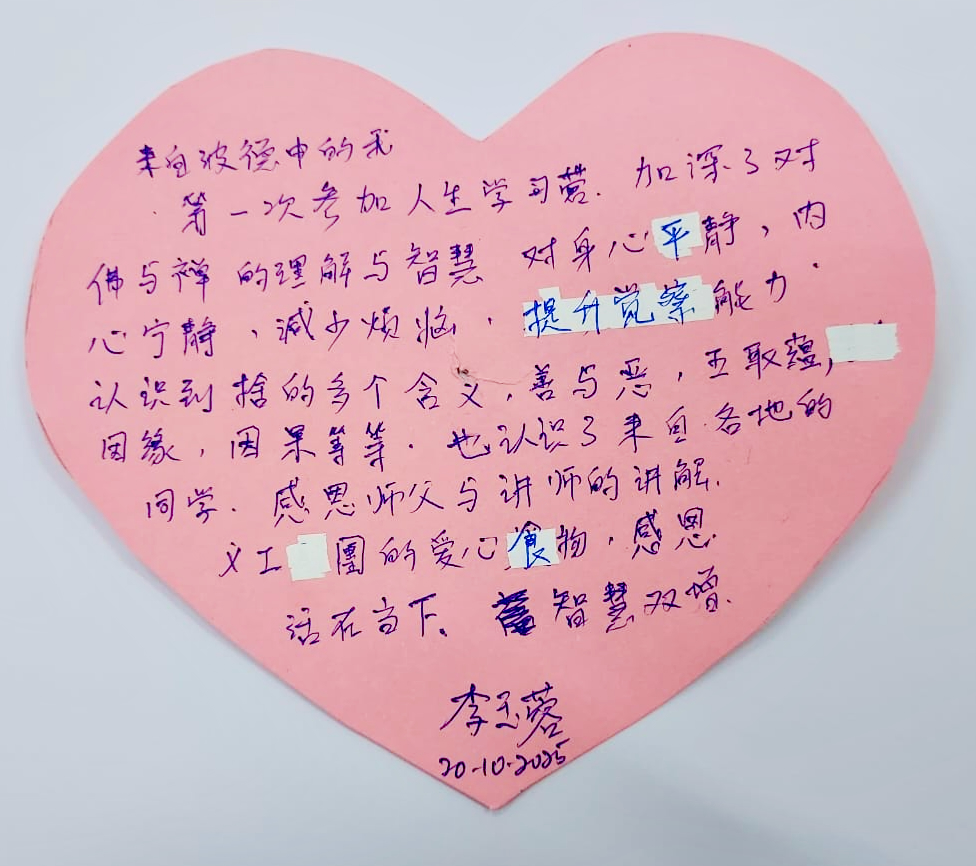 来自波德申的我
第一次参加人生学习营.加深了对
佛与禅的理解与智慧 对身心平静,内
心宁静、减少烦恼、提升觉察能力.
认识到捨的多个含义,善与恶,五取蕴,
因缘,因果等等.也认识了来自各地的
同学.感恩师父与讲师的讲解.
义工團的爱心食物,感恩.
活在当下、智慧双增.
李玉蓉
20-10-2025